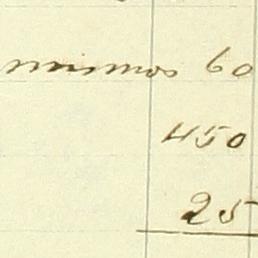 mismos 60
450
25